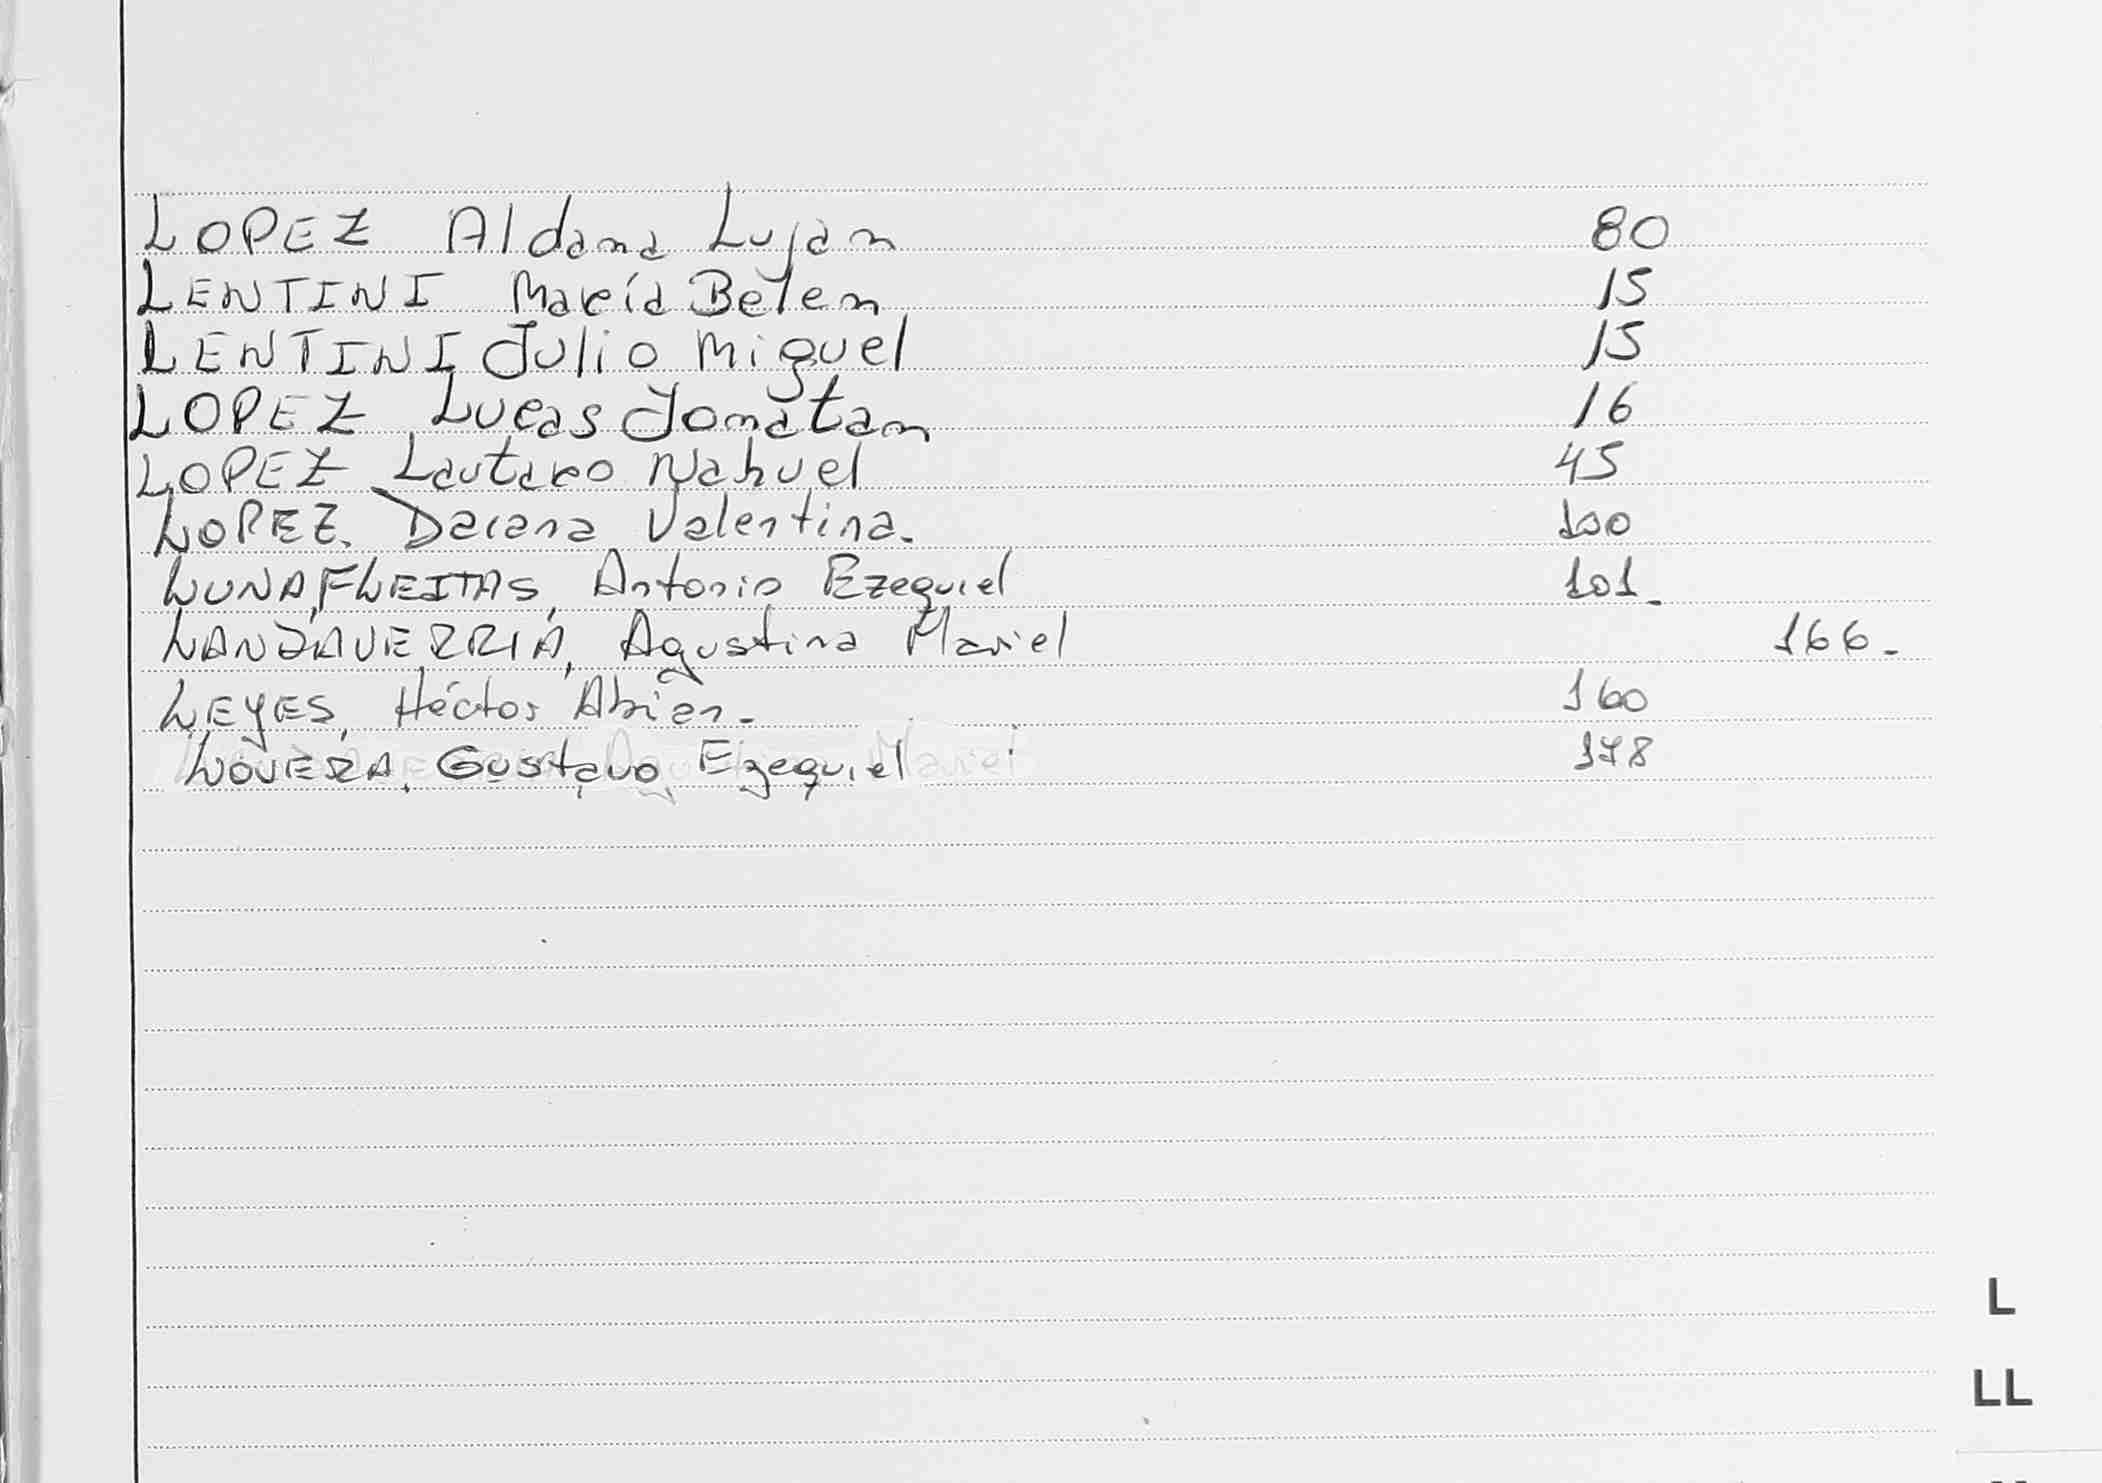 LOPEZ Aldana Luján 80
LENTINI María Belen 15
LENTINI Julio Miguel 15
LOPEZ Lucas Jonatan 16
LOPEZ Lautaro Nahuel 45
LOPEZ. Daiana Valentina. 100
LUNA FLEITAS, Antonio Ezequiel 101.
LANDAVERRIA, Agustina Mariel 166.
LEYES, Héctor Abien. 160
LOVERA, Gustavo Ezequiel 178
L
LL